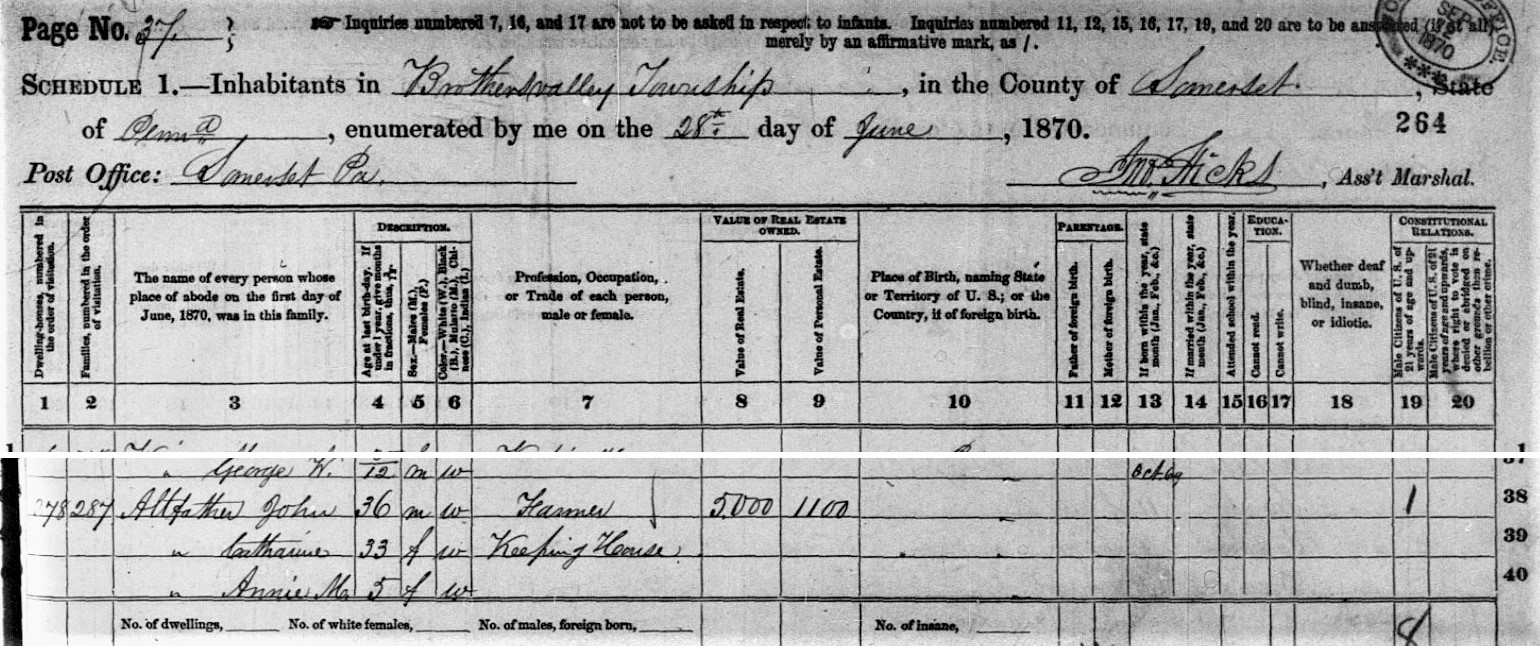 Page No. 37. ; Inquiries numbered 7, 16, and 17 are not to be asked in respect to infants. Inquiries numbered 11, 12, 15, 16, 17, 19, and 20 are to be answered (if at all)
merely by an affirmative mark, as /.
SEP 1870
SCHEDULE 1.—Inhabitants in Brothersvalley Township, in the County of Somerset, State
of Penna, enumerated by me on the 28th day of June, 1870.
264
Post Office: Somerset Pa. Jno. Hicks, Ass't Marshal.
Dwelling-houses, numbered in the order of visitation.
Families, numbered in the order of visitation.
The name of every person whose place of abode on the first day of June, 1870, was in this family.
DESCRIPTION.
Age at last birth-day. If under 1 year, give months in fractions, thus, 
Sex.—Males (M.), Females (F.)
Color.—White (W.), Black (B.), Mulatto (M.), Chinese (C.), Indian (I.)
Profession, Occupation, or Trade of each person, male or female.
VALUE OF REAL ESTATE OWNED.
Value of Real Estate.
Value of Personal Estate.
Place of Birth, naming State or Territory of U. S.; or the Country, if of foreign birth.
PARENTAGE.
Father of foreign birth.
Mother of foreign birth.
If born within the year, state month (Jan., Feb., &c.)
If married within the year, state month (Jan., Feb., &c.)
Attended school within the year.
EDUCATION.
Cannot read.
Cannot write.
Whether deaf and dumb, blind, insane, or idiotic.
CONSTITUTIONAL RELATIONS.
Male Citizens of U. S. of 21 years of age and upwards.
Male Citizens of U. S. of 21 years of age and upwards, where right to vote is denied or abridged on other grounds than rebellion or other crime.
1 2 3 4 5 6 7 8 9 10 11 12 13 14 15 16 17 18 19 20
" George W. m w Oct 69 37
278 287 Altfather John 36 m w Farmer 5000 1100 1 38
" Catharine 33 f w Keeping House 39
" Annie M. 5 f w 40
No. of dwellings, No. of white females, No. of males, foreign born, No. of insane, 8